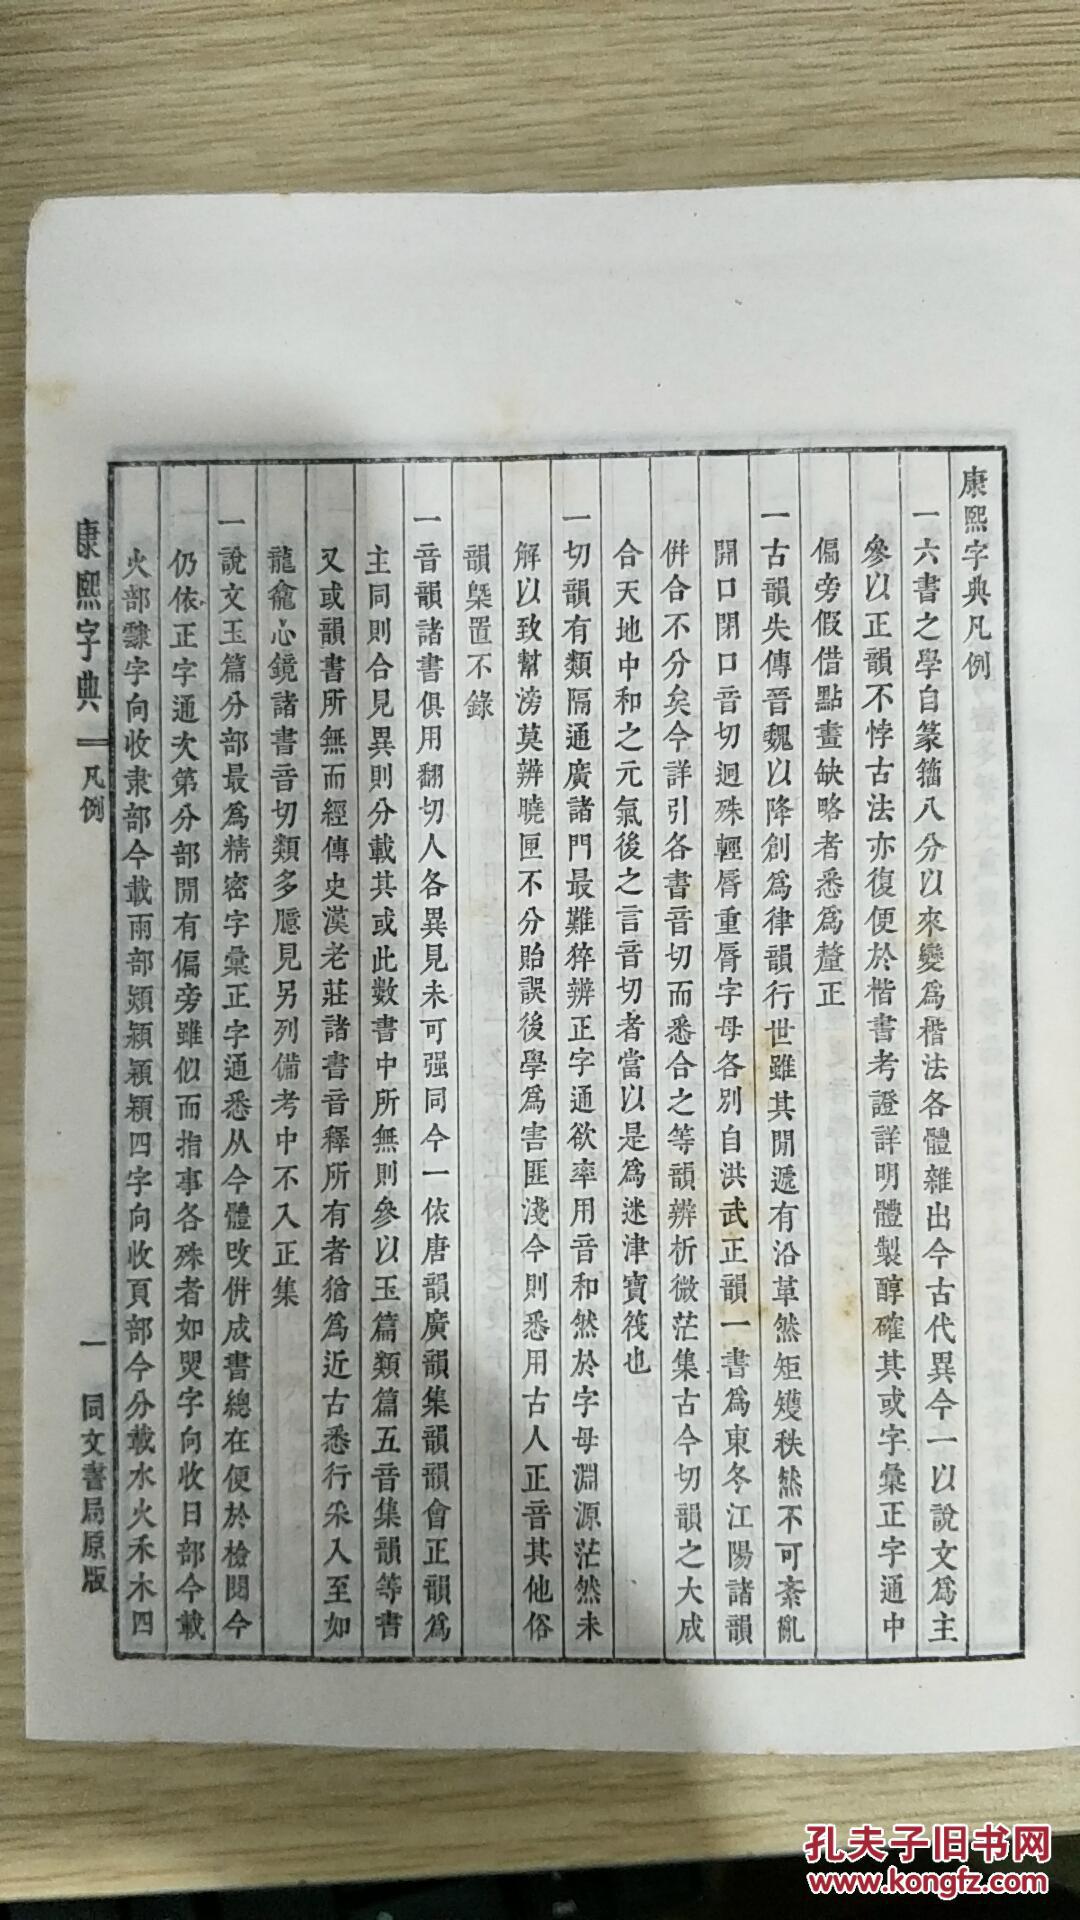 康熙字典凡例
一六書之學自篆籀八分以來變爲楷法各體雜出今古代異今一以說文爲主
參以正韻不悖古法亦復便於楷書考證詳明體製醇確其或字彙正字通中
偏旁假借點畫缺略者悉爲釐正
一古韻失傳晉魏以降創爲律韻行世雖其閒遞有沿革然矩矱秩然不可紊亂
開口閉口音切迥殊輕脣重脣字母各別自洪武正韻一書爲東冬江陽諸韻
倂合不分矣今詳引各書音切而悉合之等韻辨析微茫集古今切韻之大成
合天地中和之元氣後之言音切者當以是爲迷津寶筏也
一切韻有類隔通廣諸門最難猝辨正字通欲率用音和然於字母淵源茫然未
解以致幫滂莫辨曉匣不分貽誤後學爲害匪淺今則悉用古人正音其他俗
韻槩置不錄
一音韻諸書俱用翻切人各異見未可强同今一依唐韻廣韻集韻韻會正韻爲
主同則合見異則分載其或此數書中所無則參以玉篇類篇五音集韻等書
又或韻書所無而經傳史漢老莊諸書音釋所有者猶爲近古悉行采入至如
龍龕心鏡諸書音切類多臆見另列備考中不入正集
一說文玉篇分部最爲精密字彙正字通悉从今體改倂成書總在便於檢閱今
仍依正字通次第分部閒有偏旁雖似而指事各殊者如煚字向收日部今載
火部隸字向收隶部今載雨部潁熲穎頴四字向收頁部今分載水火禾木四
康熙字典 凡例 一 同文書局原版
孔夫子旧书网
www.kongfz.com